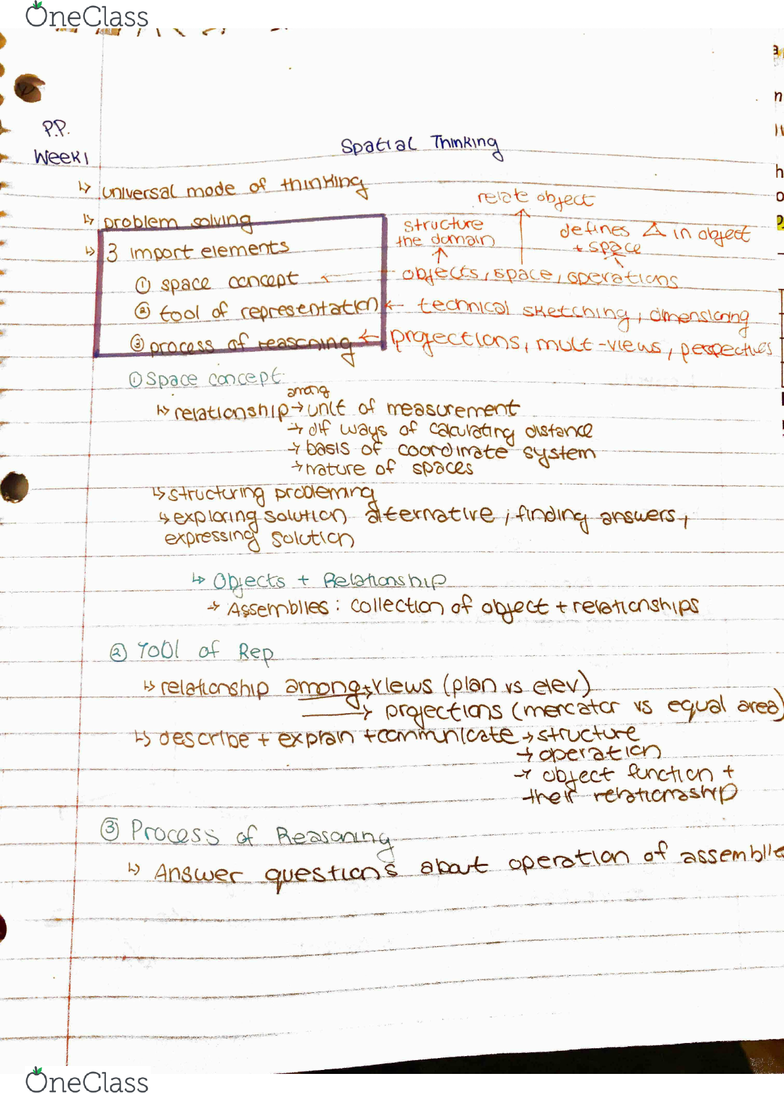 OneClass
P.P.
Week 1
Spatial Thinking
↳ universal mode of thinking
↳ problem solving
↳ 3 import elements
① space concept ← objects, space, operations
structure the domain
relate object
defines Δ in object + space
② tool of representation ← technical sketching, dimensioning
③ process of reasoning ← projections, mult-views, perspectives
① Space concept
↳ relationship among → unit of measurement
→ dif ways of calculating distance
→ basis of coordinate system
→ nature of spaces
↳ structuring probleming
↳ exploring solution alternative, finding answers,
expressing solution
↳ Objects + Relationship
→ Assemblies: collection of object + relationships
② Tool of Rep
↳ relationship among → views (plan vs elev)
→ projections (mercator vs equal area)
↳ describe + explain + communicate → structure
→ operation
→ object function +
their relationship
③ Process of Reasoning
↳ Answer questions about operation of assemblie
OneClass